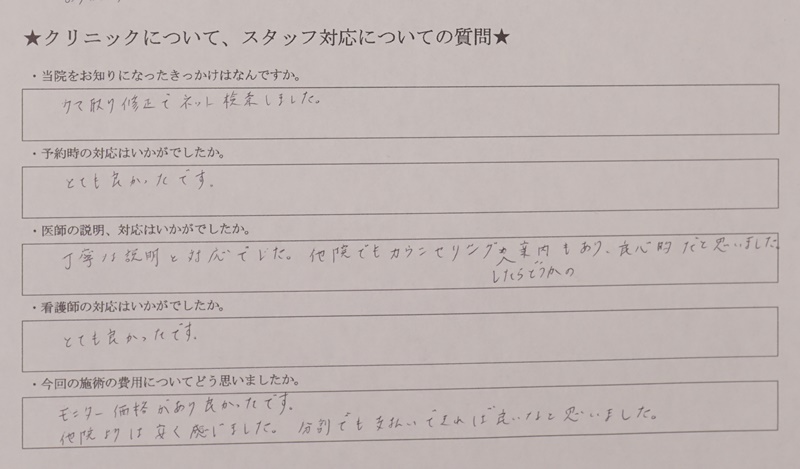 ★クリニックについて、スタッフ対応についての質問★
・当院をお知りになったきっかけはなんですか。
クマ取り修正でネット検索しました。
・予約時の対応はいかがでしたか。
とても良かったです。
・医師の説明、対応はいかがでしたか。
丁寧な説明と対応でした。他院でもカウンセリングしたらどうかの案内もあり、良心的だと思いました。
・看護師の対応はいかがでしたか。
とても良かったです。
・今回の施術の費用についてどう思いましたか。
モニター価格があり良かったです。
他院よりは安く感じました。分割でも支払いできれば良いなと思いました。